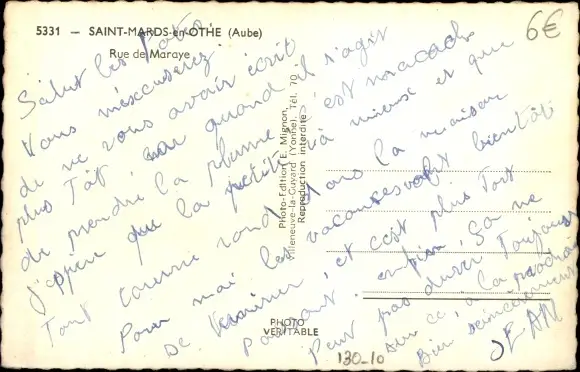 5331 — SAINT-MARDS-en-OTHE (Aube)
Rue de Maraye
6€
Salut les
Vous m'excuserez
de ne vous avoir écrit
plus Tôt car quand il s'agit
de prendre la plume c'est macache
J'espere que la petite va mieux et que
Tout Tourne rond dans la maison
Pour moi les vacances vont bientôt
se terminer, et c'est plus Tot
passant. enfin, Sa ne
Peut pas durer Toujours
sur ce, à la prochaine
Bien sincèrement
JEAN
Photo-Edition E. Mignon,
Villeneuve-la-Guyard (Yonne), Tél. 70
Reproduction interdite
PHOTO
VERITABLE
130-10